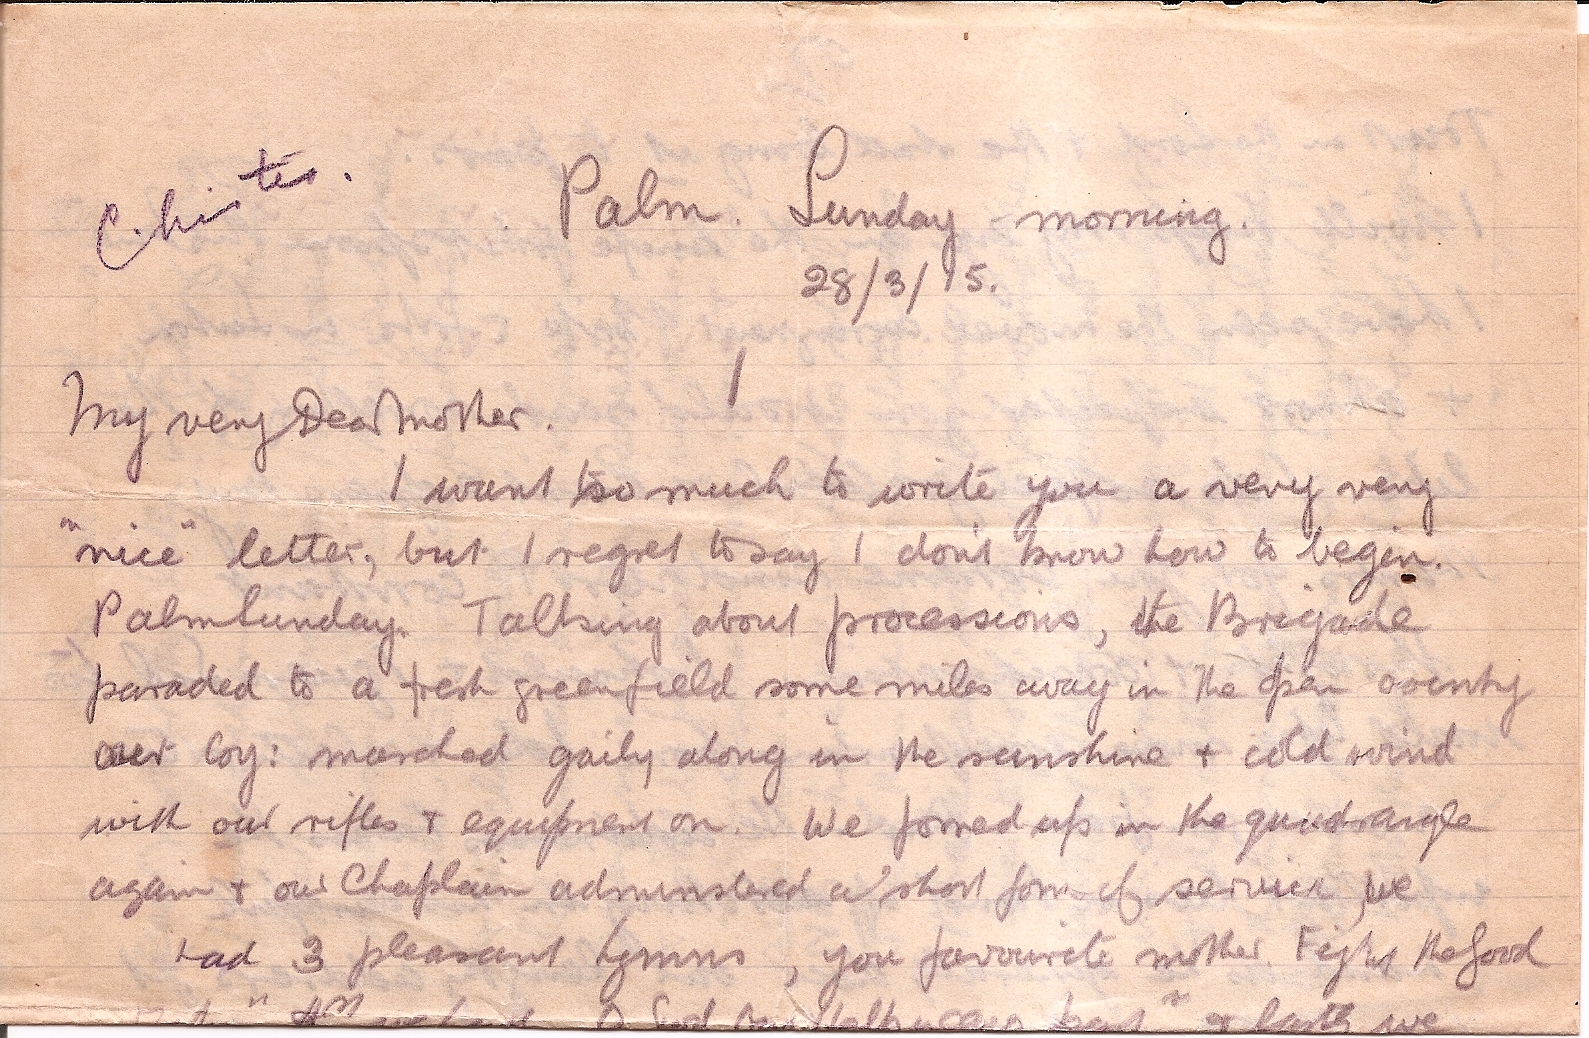 Palm. Sunday morning.
28/3/15.
1
My very Dear Mother.
I want so much to write you a very very
"nice" letter, but I regret to say I don't know how to begin.
Palm Sunday. Talking about processions, the Brigade
paraded to a fresh green field some miles away in the open country
our Coy: marched gaily along in the sunshine + cold wind
with our rifles + equipment on. We formed up in the quadrangle
again + our Chaplain administered a short form of service, we
had 3 pleasant hymns, you favourite mother. Fight the Good
" we had O God our help in ages past" + lastly we